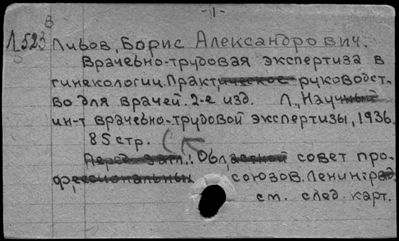 -1-
Л523
В
Львов, Борис Александрович.
Врачебно-трудовая экспертиза в
гинекологии. Практическое руководст-
во для врачей. 2-е изд. Л., Научный
ин-т врачебно-трудовой экспертизы, 1936.
85 стр.
Перед загл.: Областной совет про-
фессиональных союзов. Ленинград.
см. след. карт.